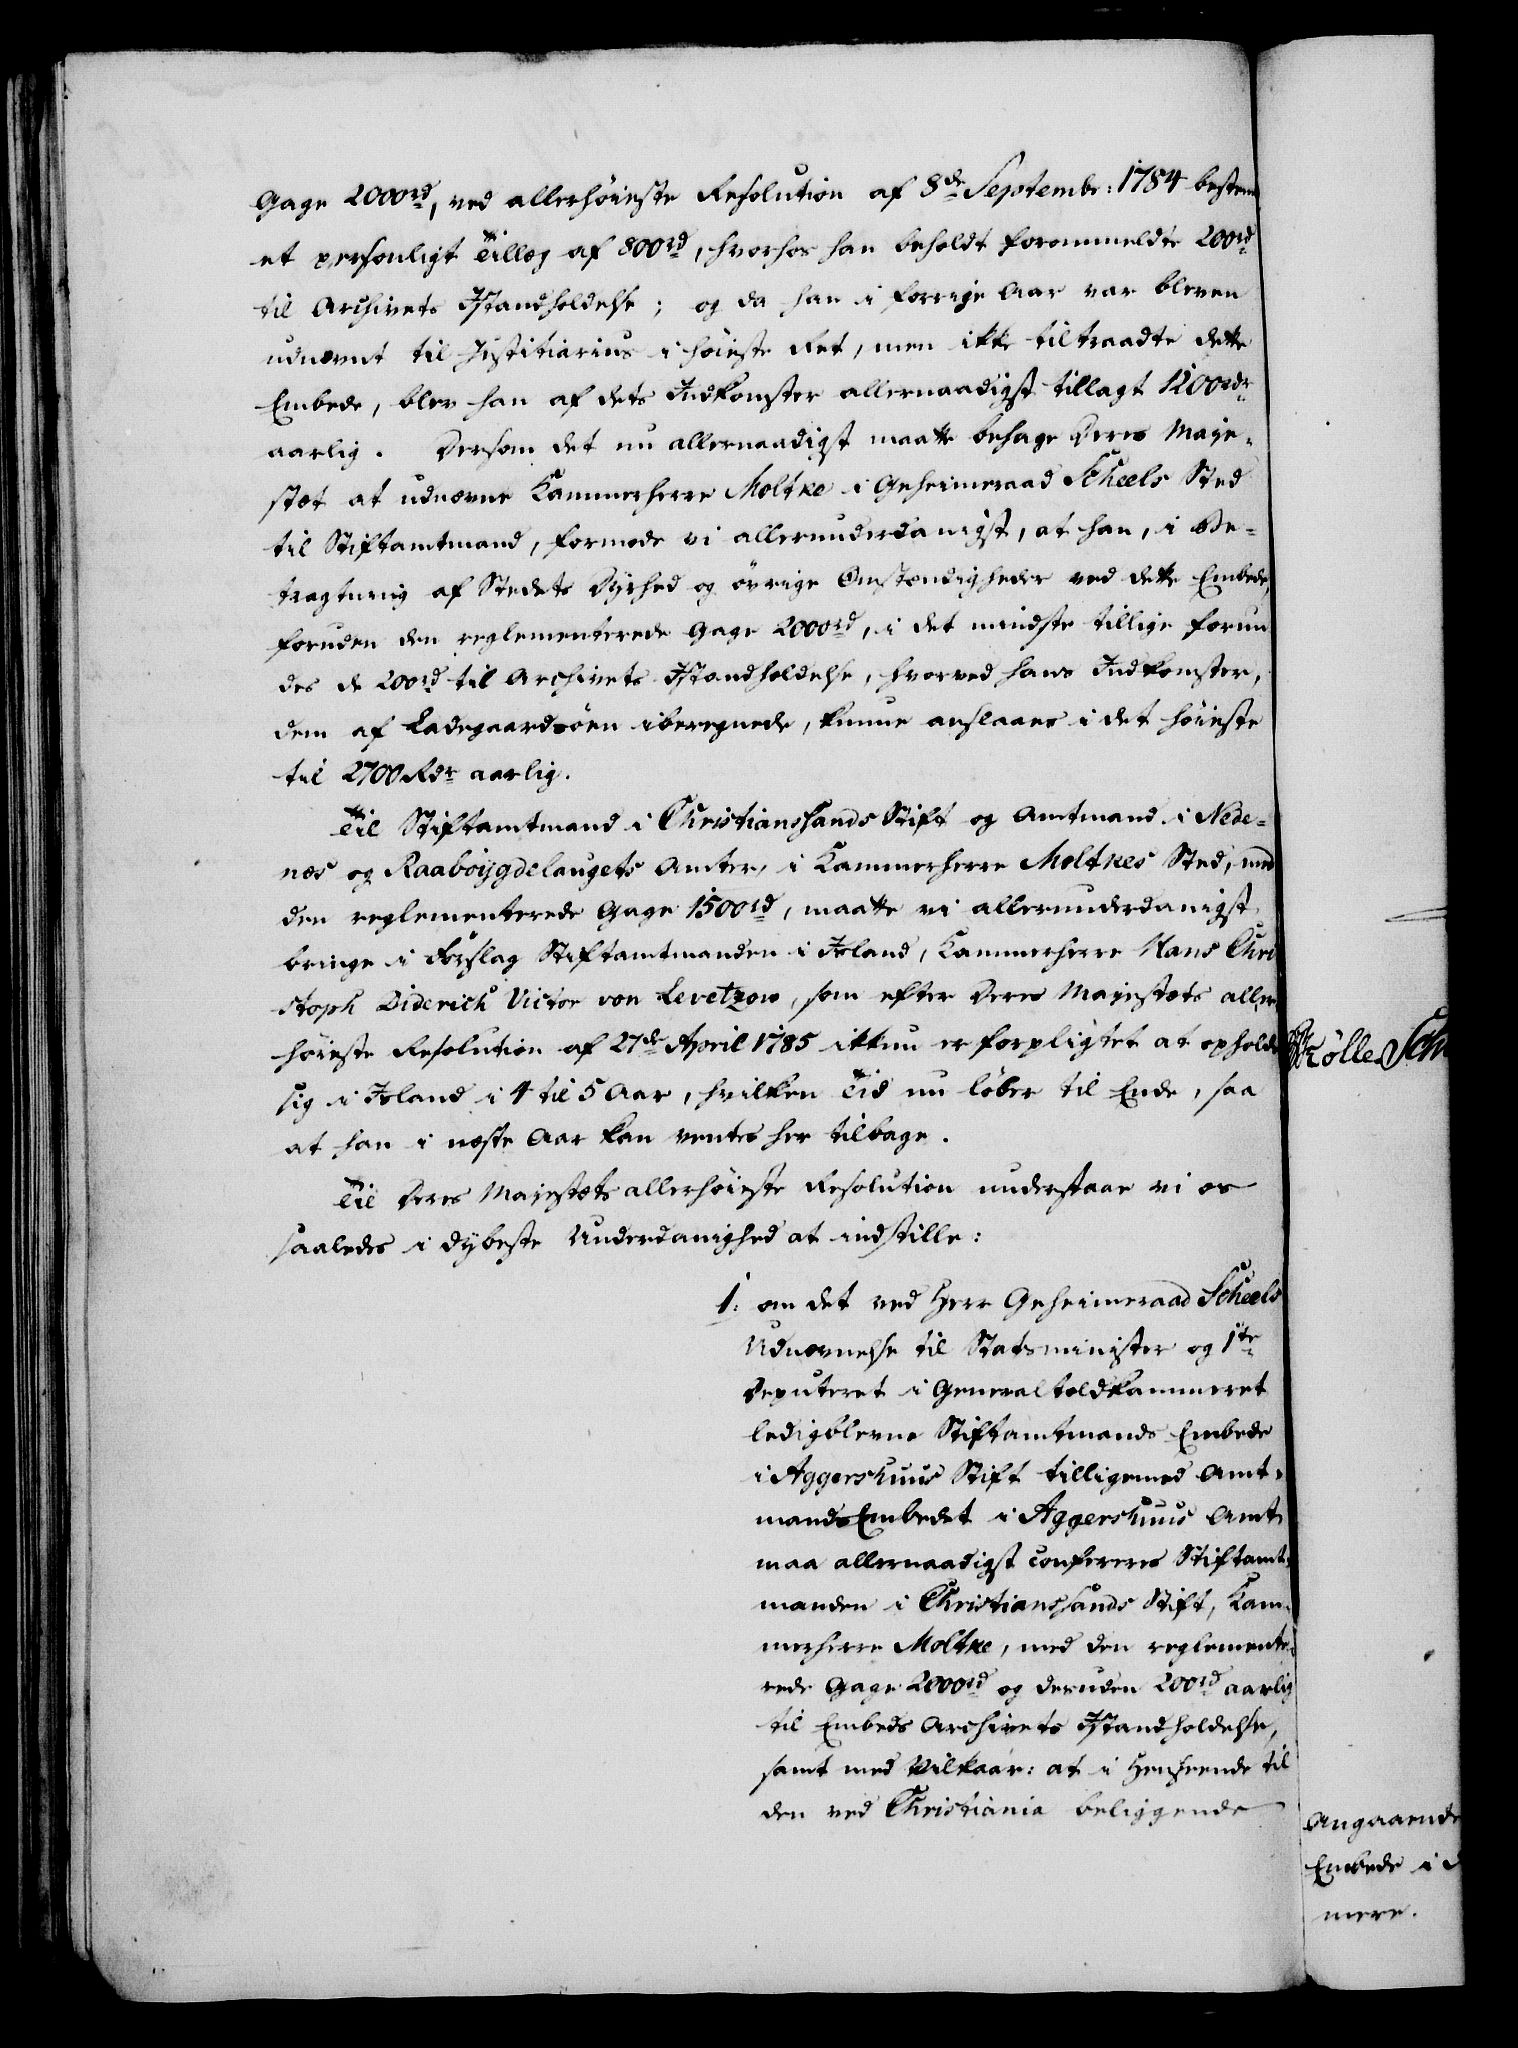 Gage 2000rd, ved allerhöieste Resolution af 8de Septembr: 1784 bestemt
et personligt Tillæg af 800rd, hvorhos han beholdt forommeldte 200rd
til Archivets Istandholdelse; og da han i forrige Aar var bleven
udnævnt til Justitiarius i höieste Ret, men ikke tiltraadte dette
Embede, blev han af dets Indkomster allernaadigst tillagt 1200rdr
aarlig. Dersom det nu allernaadigst maatte behage Deres Maje-
stæt at udnævne Kammerherre Moltke i Geheimeraad Scheels Sted
til Stiftamtmand, formode vi allerunderdanigst, at han, i Be-
tragtning af Stedets Dyrhed og övrige Omstændigheder ved dette Embede,
foruden den reglementerede Gage 2000rd, i det mindste tillige forun
des de 200rd til Archivets Istandholdelse, hvorved hans Indkomster,
dem af Ladegaardsöen iberegnede, kunne anslaaes i det höieste
til 2700 Rdr aarlig.
Til Stiftamtmand i Christianssands Stift og Amtmand i Nede-
næs og Raaböygdelaugets Amter, i Kammerherre Moltkes Sted, med
den reglementerede Gage 1500rd, maatte vi allerunderdanigst
bringe i Forslag Stiftamtmanden i Island, Kammerherre Hans Chri
stoph Diderich Victor von Levetzow, som efter Deres Majestæts aller
höieste Resolution af 27de April 1785 ikkun er forpligtet at opholde
sig i Island i 4 til 5 Aar, hvilken Tid nu löber til Ende, saa
at han i næste Aar kan ventes her tilbage.
Til Deres Majestæts allerhöieste Resolution understaae vi os
saaledes i dybeste Underdanighed at indstille:
1. om det ved Herr Geheimeraad Scheels
Udnævnelse til Statsminister og 1te
Deputeret i Generaltoldkammeret
ledigblevne Stiftamtmands Embede
i Aggershuus Stift tilligemed Amt-
mands Embedet i Aggershuus Amt
maa allernaadigst confereres Stiftamt-
manden i Christianssands Stift, Kam-
merherre Moltke, med den reglemente-
rede Gage 2000rd og desuden 200rd aarlig
til Embeds Archivets Istandholdelse,
samt med Vilkaar: at i Henseende til
den ved Christiania beliggende
Angaaende
Embede i
mere.